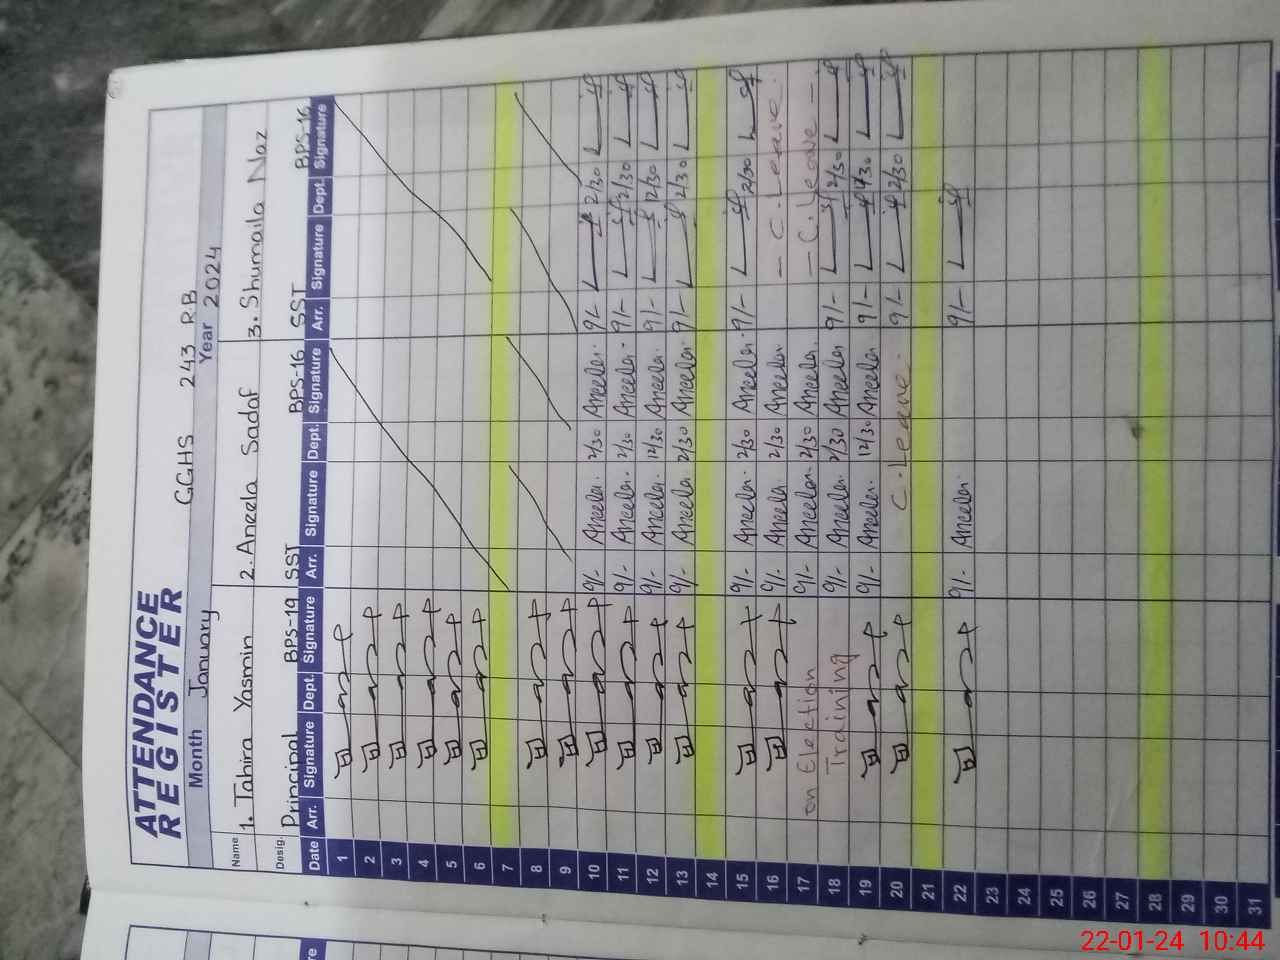 ATTENDANCE
REGISTER
GGHS 243 RB
Month January Year 2024
Name 1. Tahira Yasmin 2. Aneela Sadaf 3. Shumaila Naz
Desig. Principal BPS-19 SST BPS-16 SST BPS-16
Date Arr. Signature Dept. Signature Arr. Signature Dept. Signature Arr. Signature Dept. Signature
1
2
3
4
5
6
7
8
9
10 9/- Aneela. 2/30 Aneela. 9/- 2/30
11 9/- Aneela. 2/30 Aneela. 9/- 2/30
12 9/- Aneela. 12/30 Aneela. 9/- 12/30
13 9/- Aneela. 2/30 Aneela. 9/- 2/30
14
15 9/- Aneela. 2/30 Aneela. 9/- 2/30
16 9/- Aneela. 2/30 Aneela - C. Leave.
17 on Election 9/- Aneela. 2/30 Aneela. - C. Leave -
18 Training 9/- Aneela. 2/30 Aneela 9/- 2/30
19 9/- Aneela. 12/30 Aneela 9/-
20 C. Leave. 9/- 2/30
21
22 9/- Aneela. 9/-
23
24
25
26
27
28
29
30
31
22-01-24 10:44